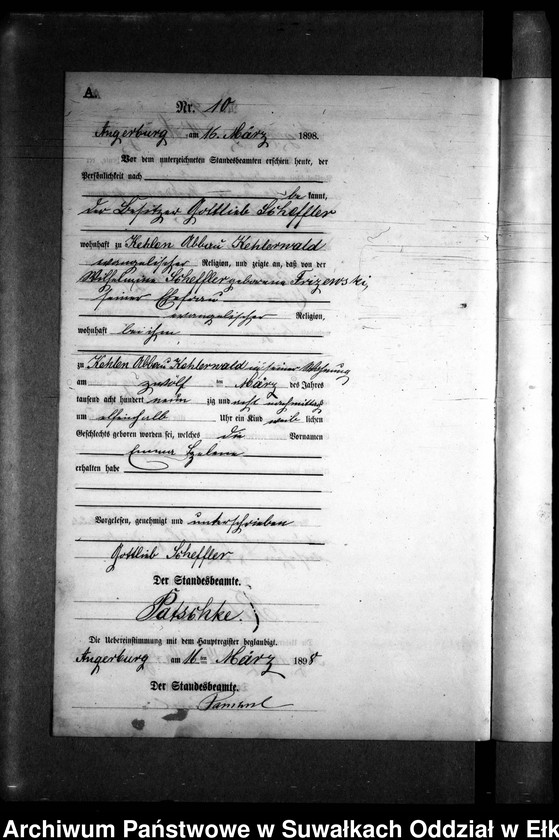 A.
Nr. 10
Angerburg am 16. März 1898.
Vor dem unterzeichneten Standesbeamten erschien heute, der
Persönlichkeit nach
be kannt,
der Besitzer Gottlieb Scheffler
wohnhaft zu Kehlen Abbau Kehlerwald
evangelischer Religion, und zeigte an, daß von der
Wilhelmine Scheffler geborene Frizewski,
seiner Ehefrau
evangelischer Religion,
wohnhaft bei ihm
zu Kehlen Abbau Kehlerwald in seiner Wohnung
am zwölf ten März des Jahres
tausend acht hundert neun zig und acht nachmittags
um elfeinhalb Uhr ein Kind weib lichen
Geschlechts geboren worden sei, welches die Vornamen
Emma Helene
erhalten habe
Vorgelesen, genehmigt und unterschrieben
Gottlieb Scheffler
Der Standesbeamte.
Patschke.
Die Uebereinstimmung mit dem Hauptregister beglaubigt.
Angerburg am 16 ten März 1898
Der Standesbeamte.
Archiwum Państwowe w Suwałkach Oddział w Ełk